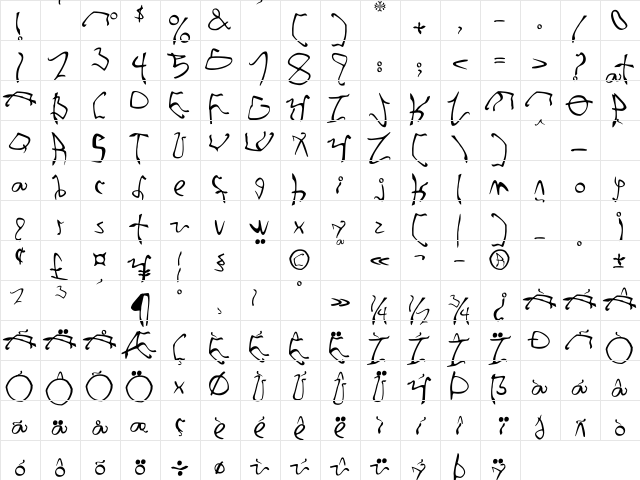 ! $ % & ( ) * + , - . / 0
1 2 3 4 5 6 7 8 9 : ; < = > ? @
A B C D E F G H I J K L M N O P
Q R S T U V W X Y Z [ \ ] ^ _
a b c d e f g h i j k l m n o p
q r s t u v w x y z { | } ¡
¢ £ ¤ ¥ ¦ § ¨ © ª « ¬ - ® ¯ ° ±
² ³ ´ ¶ · ¸ ¹ º » ¼ ½ ¾ ¿ À Á Â
Ã Ä Å Æ Ç È É Ê Ë Ì Í Î Ï Ð Ñ Ò
Ó Ô Õ Ö × Ø Ù Ú Û Ü Ý Þ ß à á â
ã ä å æ ç è é ê ë ì í î ï ð ñ ò
ó ô õ ö ÷ ø ù ú û ü ý þ ÿ